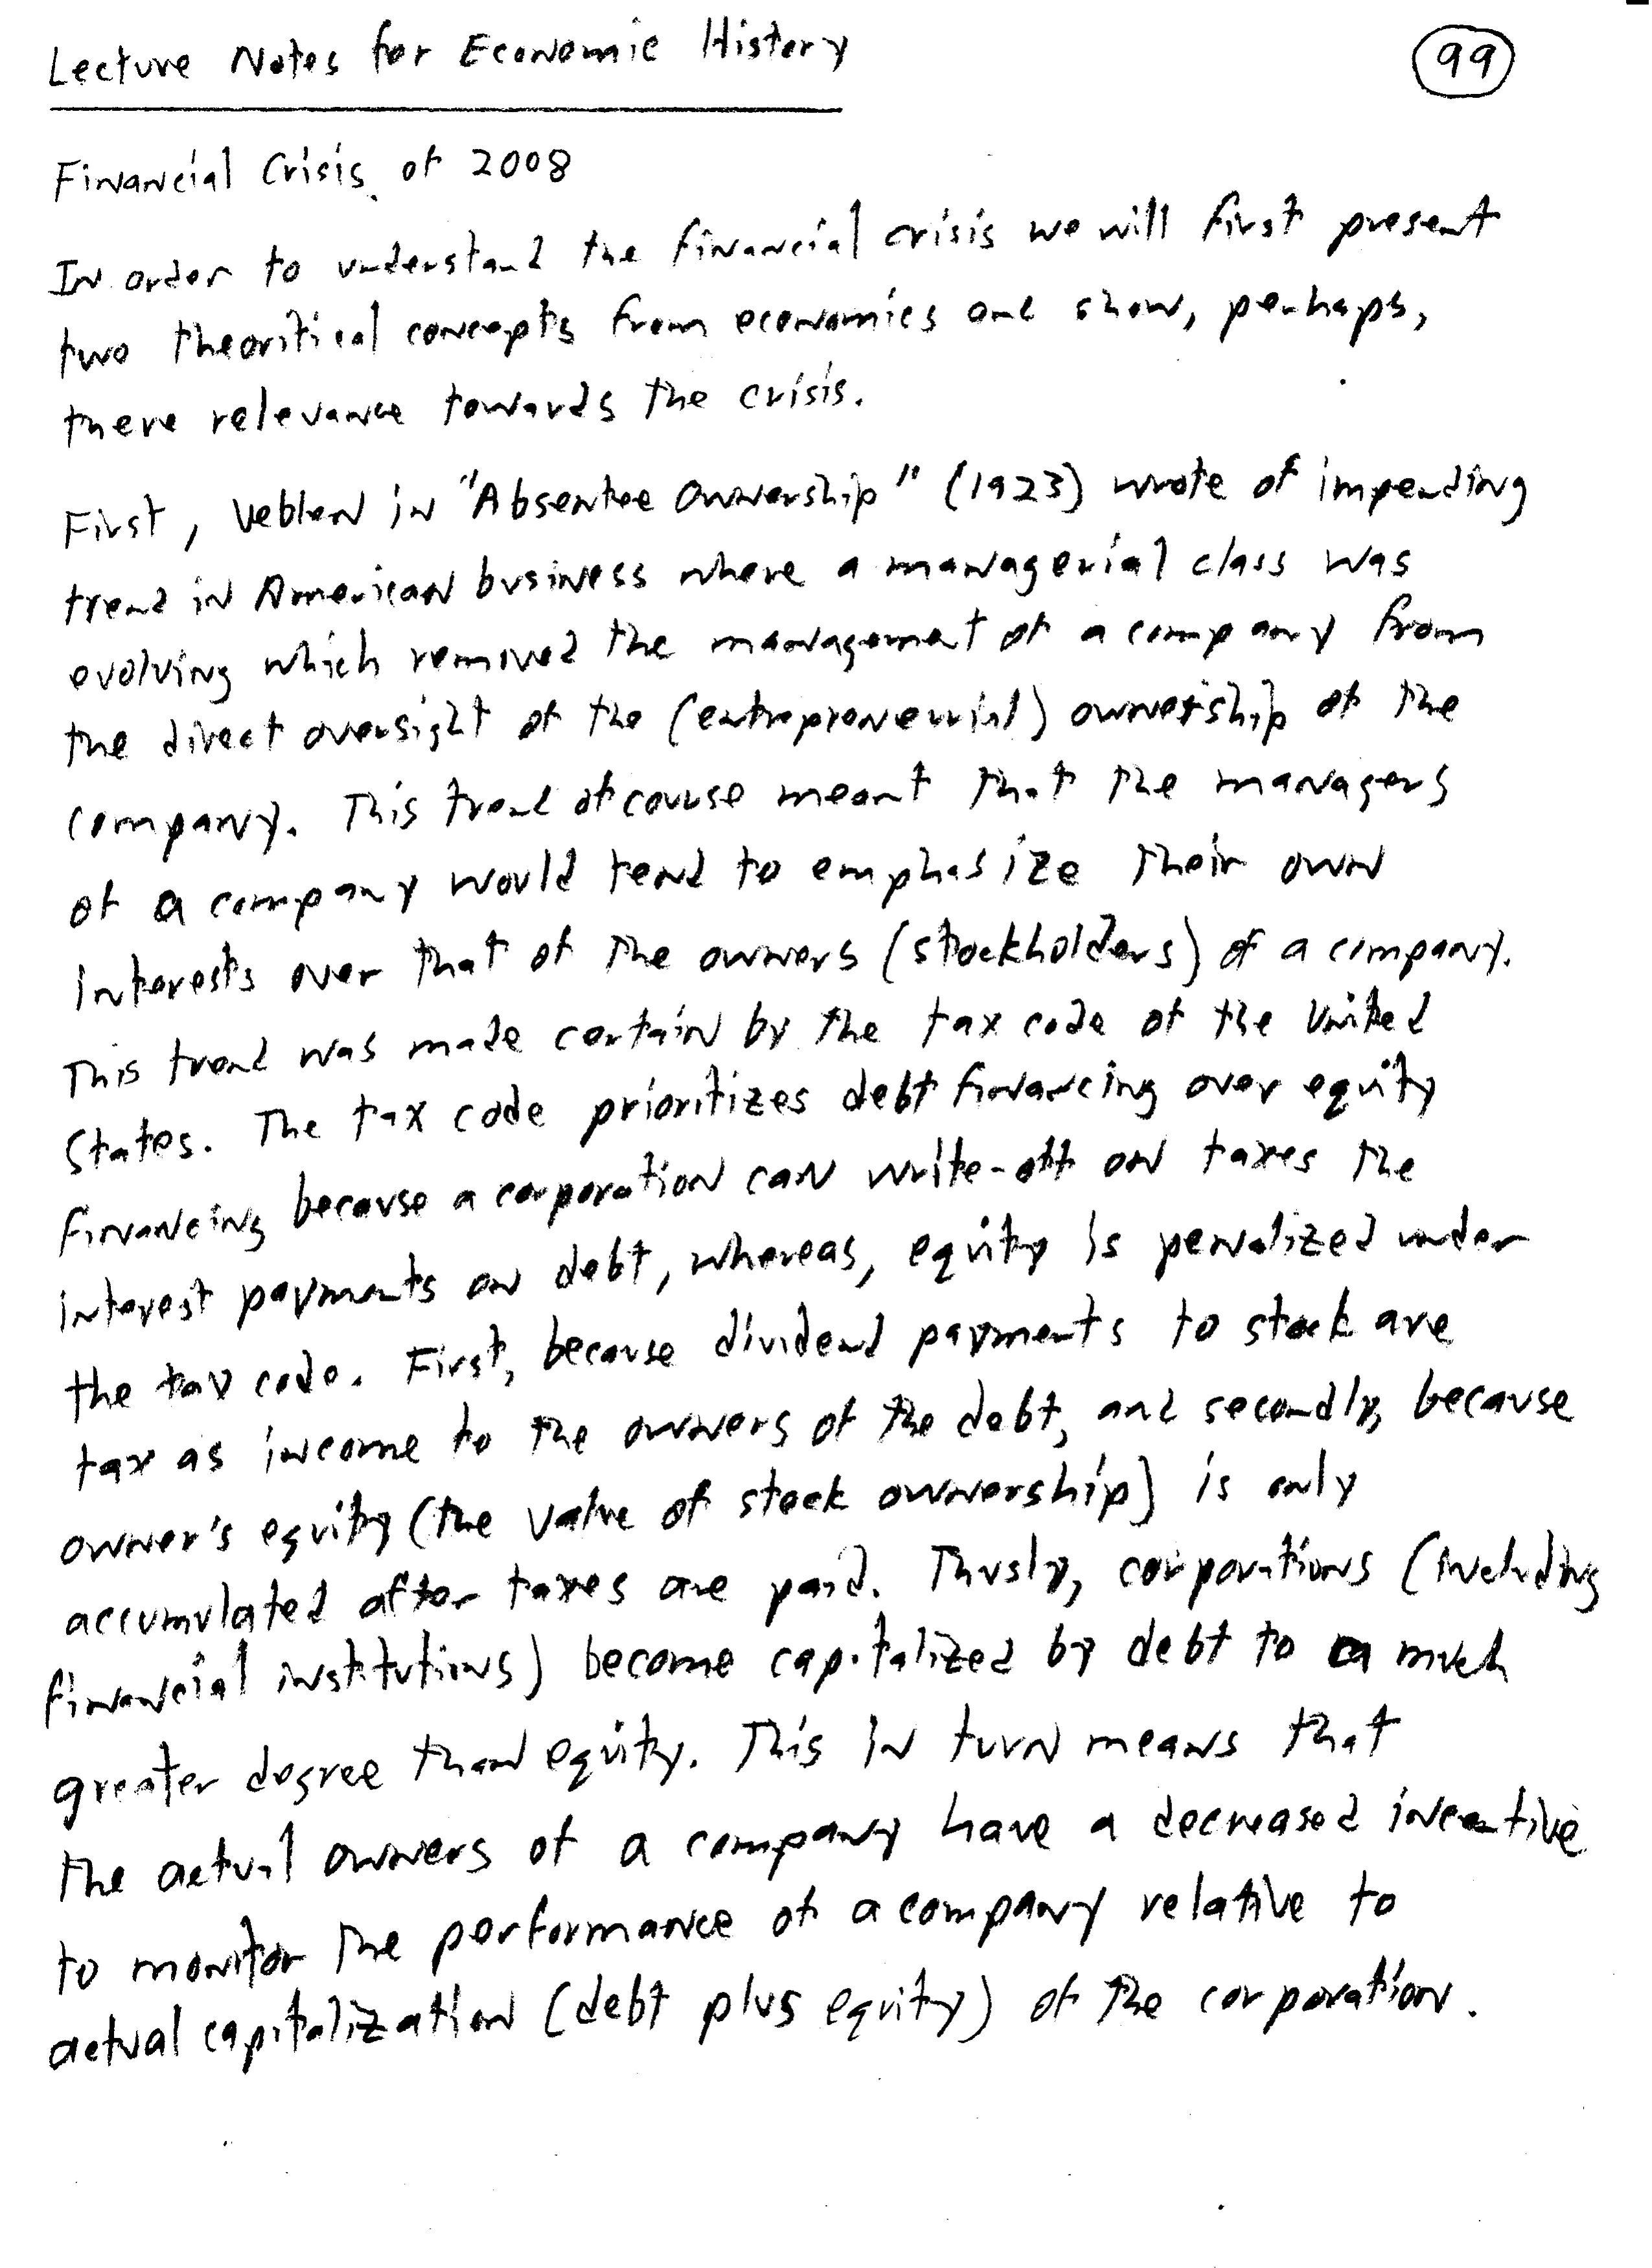 Lecture Notes for Economic History
99
Financial Crisis of 2008
In order to understand the financial crisis we will first present
two theoritical concepts from economics and show, perhaps,
there relevance towards the crisis.
First, Veblen in "Absentee Ownership" (1923) wrote of impending
trend in American business where a managerial class was
evolving which removed the management of a company from
the direct oversight of the (entrepreneurial) ownership of the
company. This trend of course meant that the managers
of a company would tend to emphasize their own
interests over that of the owners (stockholders) of a company.
This trend was made certain by the tax code of the United
States. The tax code prioritizes debt financing over equity
financing because a corporation can write-off on taxes the
interest payments on debt, whereas, equity is penalized under
the tax code. First, because dividend payments to stock are
tax as income to the owners of the debt, and secondly, because
owner's equity (the value of stock ownership) is only
accumulated after taxes are paid. Thusly, corporations (including
financial institutions) become capitalized by debt to a much
greater degree than equity. This in turn means that
the actual owners of a company have a decreased incentive
to monitor the performance of a company relative to
actual capitalization (debt plus equity) of the corporation.